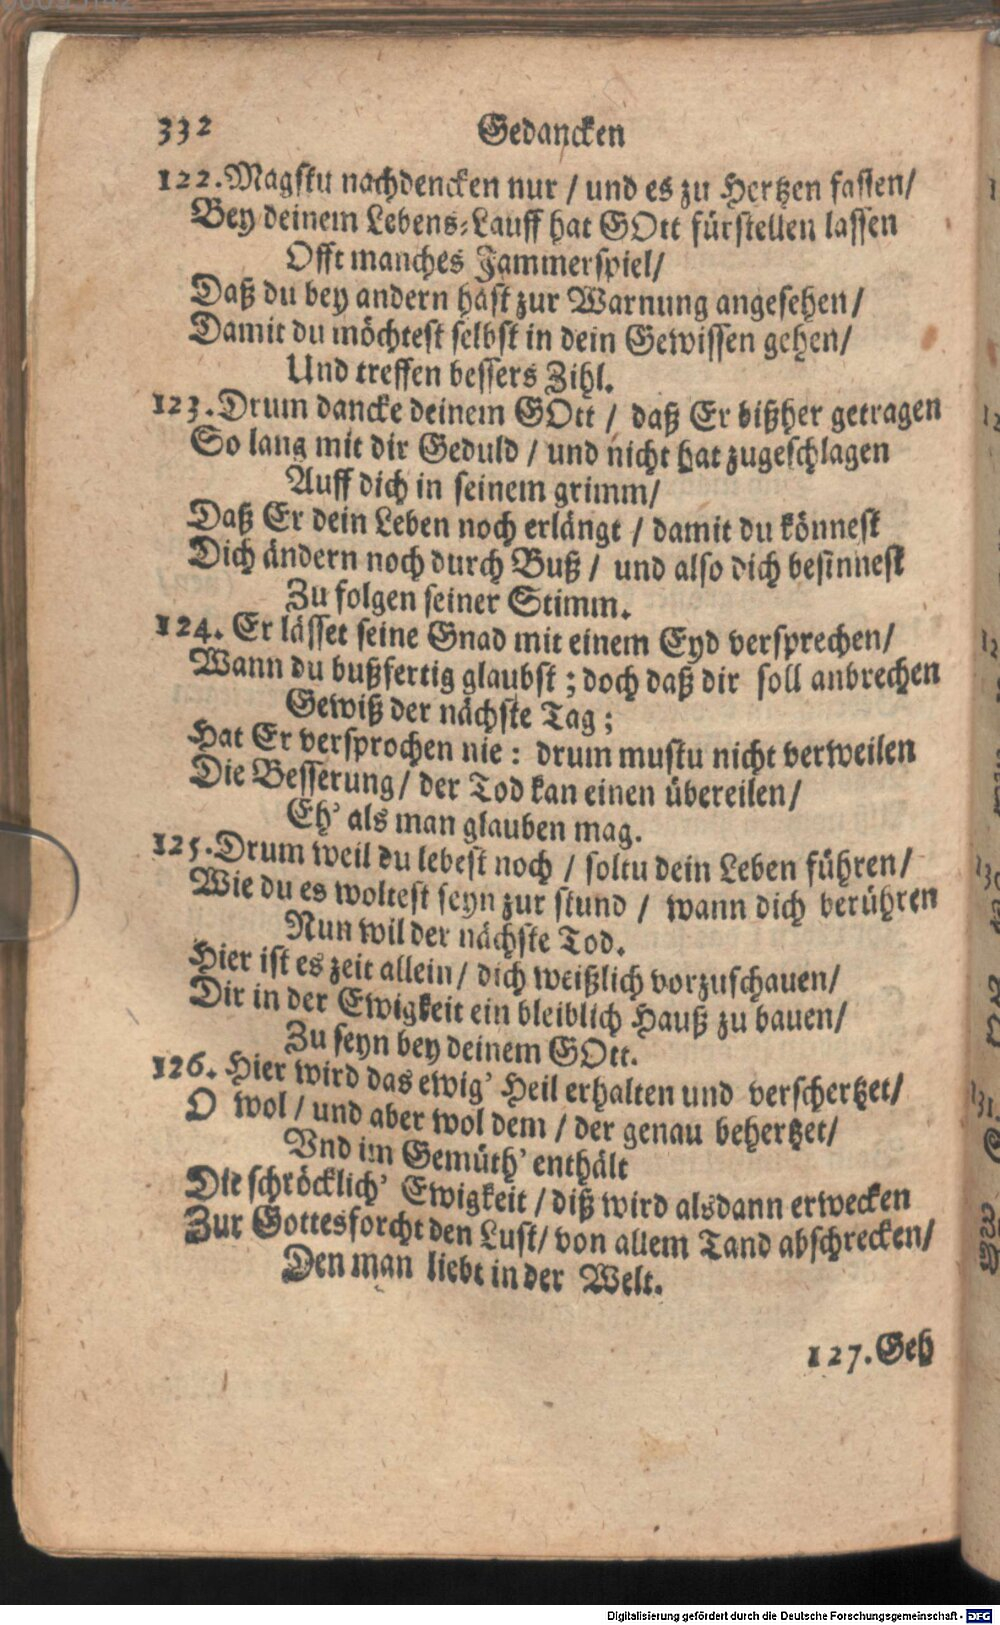 332 Gedancken
122. Magstu nachdencken nur / und es zu Hertzen fassen/
Bey deinem Lebens-Lauff hat GOtt fürstellen lassen
Offt manches Jammerspiel/
Daß du bey andern hast zur Warnung angesehen/
Damit du möchtest selbst in dein Gewissen gehen/
Und treffen bessers Zihl.
123. Drum dancke deinem GOtt / daß Er bißher getragen
So lang mit dir Geduld / und nicht hat zugeschlagen
Auff dich in seinem grimm/
Daß Er dein Leben noch erlängt / damit du könnest
Dich ändern noch durch Buß / und also dich besinnest
Zu folgen seiner Stimm.
124. Er lässet seine Gnad mit einem Eyd versprechen/
Wann du bußfertig glaubst ; doch daß dir soll anbrechen
Gewiß der nächste Tag ;
Hat Er versprochen nie : drum mustu nicht verweilen
Die Besserung / der Tod kan einen übereilen/
Eh' als man glauben mag.
125. Drum weil du lebest noch / soltu dein Leben führen/
Wie du es woltest seyn zur stund / wann dich berühren
Nun wil der nächste Tod.
Hier ist es zeit allein / dich weißlich vorzuschauen/
Dir in der Ewigkeit ein bleiblich Hauß zu bauen/
Zu seyn bey deinem GOtt.
126. Hier wird das ewig' Heil erhalten und verschertzet/
O wol / und aber wol dem / der genau behertzet/
Vnd im Gemüth' enthält
Die schröcklich' Ewigkeit / diß wird alsdann erwecken
Zur Gottesforcht den Lust / von allem Tand abschrecken/
Den man liebt in der Welt.
127. Geh
Digitalisierung gefördert durch die Deutsche Forschungsgemeinschaft - DFG